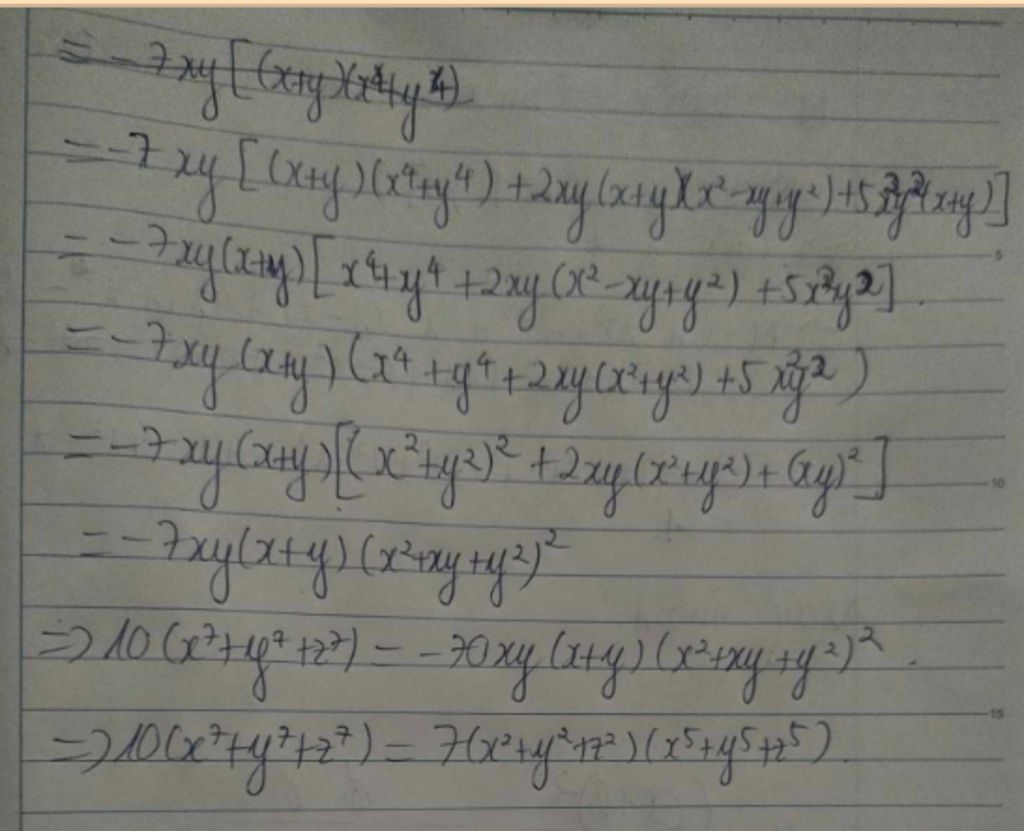 = -7xy[(x+y)(x⁴+y⁴)
= -7xy[(x+y)(x⁴+y⁴)+2xy(x+y)(x²-xy+y²)+5x²y²(x+y)]
= -7xy(x+y)[x⁴+y⁴+2xy(x²-xy+y²)+5x²y²].
= -7xy(x+y)(x⁴+y⁴+2xy(x²+y²)+5x²y²)
= -7xy(x+y)[(x²+y²)²+2xy(x²+y²)+(xy)²]
= -7xy(x+y)(x²+xy+y²)²
⇒ 10(x⁷+y⁷+z⁷) = -70xy(x+y)(x²+xy+y²)².
⇒ 10(x⁷+y⁷+z⁷) = 7(x²+y²+z²)(x⁵+y⁵+z⁵).
5
10
15